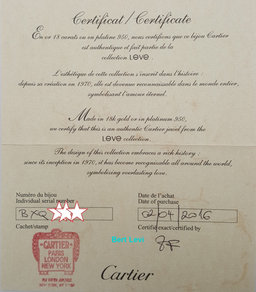 Certificat / Certificate
En or 18 carats ou en platine 950, nous certifions que ce bijou Cartier
est authentique et fait partie de la
collection LOVE.
L'esthétique de cette collection s'inscrit dans l'histoire :
depuis sa création en 1970, elle est devenue reconnaissable dans le monde entier,
symbolisant l'amour éternel.
Made in 18k gold or in platinum 950,
we certify that this is an authentic Cartier jewel from the
LOVE collection.
The design of this collection embraces a rich history :
since its inception in 1970, it has become recognisable all around the world,
symbolising everlasting love.
Numéro du bijou
Individual serial number
Date de l'achat
Date of purchase
02/04/2016
Cachet/stamp
Certifié exact/certified by
CARTIER
PARIS
LONDON
NEW YORK
Cartier